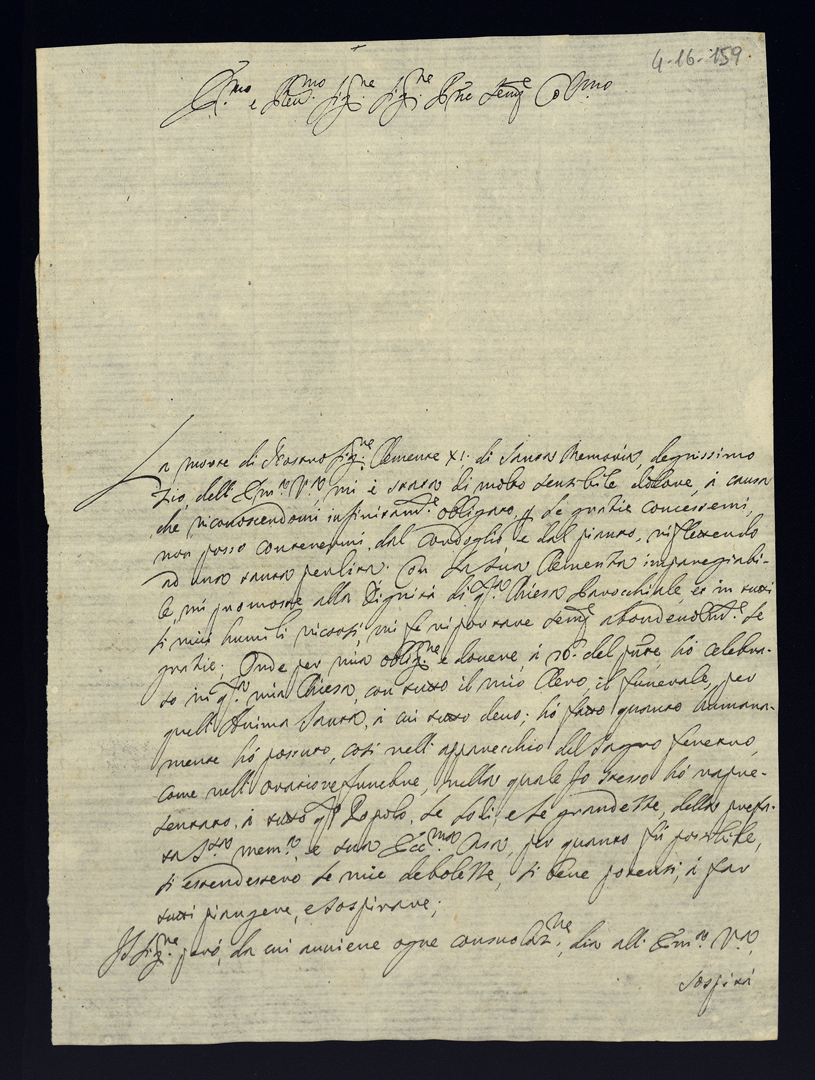 4-16-159
E.mo e Reu.mo Sig.ne Sig.ne P.ne Semp.e Co.mo
La morte di Nostro Sig.ne Clemente XI. di Santa Memoria, degnissimo
Zio, dell'Em.a V.a mi è stata di molto sensibile dolore, à causa
che riconoscendomi infinitam.e obligato, p le gratie concessemi,
non posso contenermi, dal condoglio e dal pianto, riflettendo
ad una tanta perdita. Con la sua Clemenza impareggiabi-
le, mi promosse alla Dignità di q.ta Chiesa Parochiale, et in tutti
li miei humili ricorsi, mi fé riportare semp.e abondevolm.e le
gratie; Onde per mia oblig.ne e douere, à 10 del pñte, hò celebra-
to in q.ta mia Chiesa, con tutto il mio Clero, il funerale, per
quell'Anima Santa, à cui tutto deuo; hò fatto quanto humana-
mente hò possuto, così nell'apparecchio del Sagro feretro,
come nell'oratione funebre, nella quale Io stesso hò rapre-
sentato, à tutto q.to Popolo, le lodi, e le grandezze, della prefa-
ta S.ta mem.a, e sua Ecc.ma Casa, per quanto fù possibile,
si estendessero le mie debolezze, si bene potenti, à far
tutti piangere, e sospirare;
Il Sig.ne però, da cui auuiene ogne consolaz.ne, dia all'Em.a V.a,
Sospirà